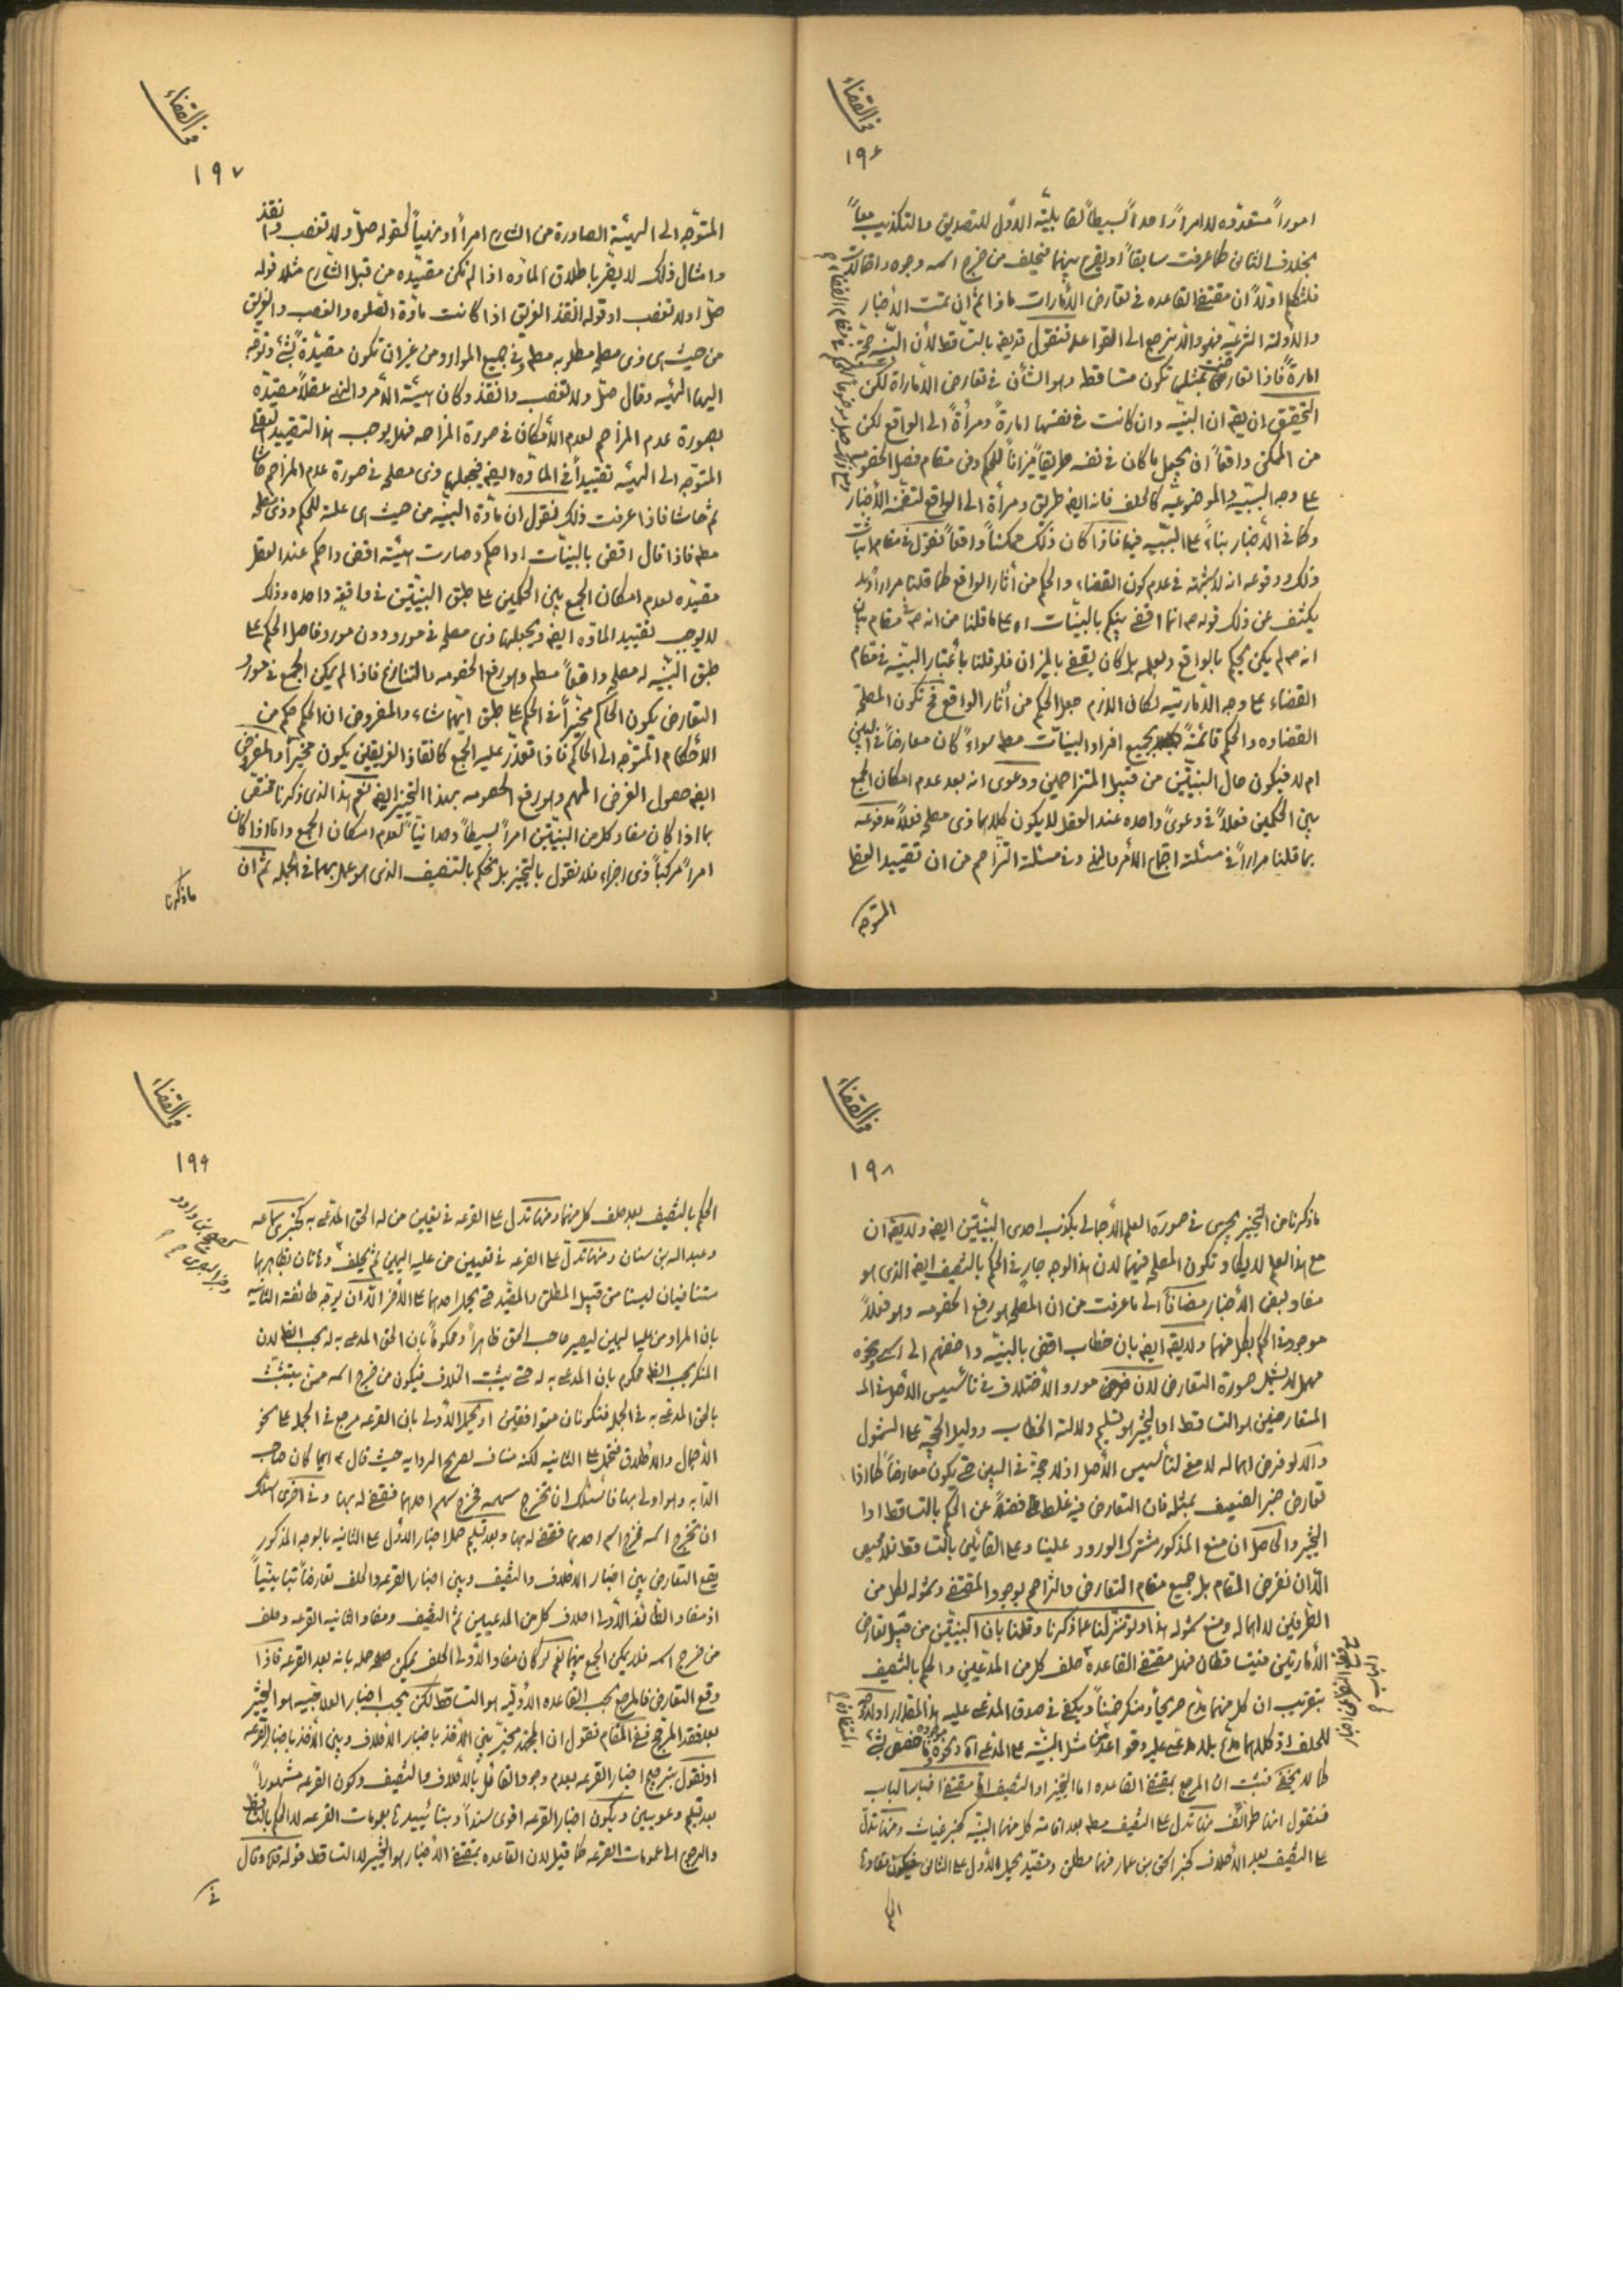 في القضاء
١٩٦
اموراً متعدده لا امراً واحداً بسيطاً لقابليّة الاوّل للتصديق والتكذيب معاً
بخلاف الثانى كما عرفت سابقاً او يقرع بينهما فيحلف من خرج اسمه وجوه واقوالات
فلنتكلم اوّلاً ان مقتضى القاعده فى تعارض الأمارات ماذا ثم ان تمت الأخبار
والأدلة الشرعيّة فهو والّا نرجع الى القواعد فنقول قد يقال بالتساقط لأن البيّنه حجّة
امارةً فاذا تعارضت بمثلها تكون متساقطه وهو الشأن فى تعارض الأماراة لكن
التحقيق ان يقال ان البيّنه وان كانت فى نفسها امارةً ومرأةً الى الواقع لكن
من الممكن واقعاً ان يجعل ما كان فى نفسه طريقاً ميزاناً للحكم وفى مقام فصل الخصومه
على وجه السببيّه والموضوعيّه كالحلف فانه ايضا طريق ومرأة الى الواقع لتضمنه الأخبار
وكما فى الأخبار بناءً على السببيّه فيها فاذا كان ذلك ممكناً واقعاً فنقول فى مقام اثبات
ذلك ووقوعه انه لا شبهة فى عدم كون القضاء والحكم من آثار الواقع كما قلنا مراراً وقد
يكشف عن ذلك قوله ص انما اقضى بينكم بالبيّنات اه على ما قلنا من انه ص فى مقام بيان
انه ص لم يكن يحكم بالواقع وبعلمه بل كان يقضى بالميزان فلو قلنا بأعتبار البيّنه فى مقام
القضاء على وجه الأماريّة لكان اللازم جعل الحكم من آثار الواقع فح تكون المصلحة
القضاوه والحكم قائمةً بجميع افراد البيّنات مطلقا سواءً كان معارضاً فى البين
ام لا فيكون حال البيّنتين من قبيل المتزاحمين ودعوى انه بعد عدم امكان الجمع
بين الحكمين فعلاً فى دعوىً واحده عند العقل لا يكون كلاهما ذى مصلحه فعلاً مدفوعه
بما قلنا مراراً فى مسئلة اجتماع الأمر والنهى وفى مسئلة التزاحم من ان تقييد العقل
المتوجه
في القضاء
١٩٧
المتوّجه الى الهيئة الصادرة من الشارع امراً او نهياً كقوله صلّ ولا تغصب وانقذ
وامثال ذلك لا يضرّ باطلاق المادّه اذا لم تكن مقيّده من قبل الشارع مثلا قوله
صلّ اولا تغصب او قوله انقذ الغريق اذا كانت مادّة الصلوه والغصب والغريق
من حيث هى ذى مصلحه مطلوبه مطلقا وفى جميع الموارد من غير ان تكون مقيّدةً بشىء وتوجّه
اليها الهيئه وقال صلّ ولا تغصب وانقذ وكان هيئة الأمر والنهى عقلاً مقيّده
بصورة عدم المزاحم لعدم الأمكان فى صورة المزاحمه فهل يوجب هذا التقييد العقلى
المتوّجه الى الهيئه تقييداً فى المادّه ايضا فيجعلها ذى مصلحه فى صورة عدم المزاحم حاشا
ثم حاشا فاذا عرفت ذلك فنقول ان مادّة البيّنه من حيث هى علة للحكم وذى مصلحه
مطلقا فاذا قال اقض بالبيّنات او احكم وصارت هيئة اقض واحكم عند العقل
مقيّده لعدم امكان الجمع بين الحكمين على طبق البيّنتين فى واقعة واحده وذلك
لا يوجب تقييد المادّه ايضا ويجعلها ذى مصلحه فى مورد دون مورد فاصل الحكم على
طبق البيّنه له مصلحه واقعاً مطلقا وهو رفع الخصومه والتنازع فاذا لم يمكن الجمع فى مورد
التعارض يكون الحاكم مخيّراً فى الحكم على طبق ايّهما شاء والمفروض ان الحكم حكم من
الأحكام المتوّجه الى الحاكم فاذا تعذّر عليه الجمع كانقاذ الغريقين يكون مخيّراً والمفروض
ايضا حصول الغرض المهم وهو رفع الخصومه بهذا التخيير ايضا نعم هذا الذى ذكرنا مختصّ
بما اذا كان مفاد كل من البيّنتين امراً بسيطاً وحدانيّاً لعدم امكان الجمع واما اذا كان
امراً مركباً ذى اجزاء فلا نقول بالتخيير بل نحكم بالتنصيف الذى هو عمل بهما فى الجمله ثم ان
ما ذكرنا
في القضاء
١٩٨
ما ذكرنا من التخيير يجرى فى صورة العلم الأجمالى بكذب احدى البيّنتين ايضا ولا يقال ان
مع هذا العلم لا يكاد تكون المصلحه فيهما لأن هذا الوجه جارٍ فى الحكم بالتنصيف ايضا الذى هو
مفاد بعض الأخبار مضافاً الى ما عرفت من ان المصلحه هو رفع الخصومه وهو فعلاً
موجودة فى الحكم بكل منهما ولا يقال ايضا بان خطاب اقض بالبيّنه واضفهم الى اسمى ونحوه
مهمل لا يشمل صورة التعارض لأن مورد الأختلاف فى تأسيس الأصل فى
المتعارضين هو التساقط او التخيير هو تسليم دلالة الخطاب ودليل الحجيّه على الشمول
والّا لو فرض اهماله لا معنى لتأسيس الأصل اذ لا حجة فى البين حتى يكون معارضاً كما اذا
تعارض خبر الضعيف بمثله فان التعارض فيه غلط فضلاً عن الحكم بالتساقط او
التخيير والحاصل ان منع المذكور مشترك الورود علينا وعلى القائلين بالتساقط فلا محيص
الّا ان نفرض المقام بل جميع مقام التعارض والتزاحم بوجود المقتضى وشموله لكل من
الطرفين لا اهماله ومنع شموله هذا ولو تنزلنا عما ذكرنا وقلنا بان البيّنتين من قبيل تعارض
الأمارتين فيتساقطان فهل مقتضى القاعدة حلف كل من المدعيين والحكم بالتنصيف
بتقريب ان كل منهما مدّع صريحاً ومنكر ضمناً ويكفى فى صدق المدعى عليه هذا المقدار اولا وجه
للحلف اذ كلاهما مدّع بلا مدعى عليه وقواعد مثل البيّنة على المدعى اه ونحوه مختص بشىء
كما لا يخفى فثبت ان المرجع بمقتضى القاعده اما التخيير او التنصيف اما مقتضى اخبار الباب
فنقول انها طوائف منها تدل على التنصيف مطلقا بعد اقامة كل منهما البيّنه كخبر غياث ومنها تدلّ
على التنصيف بعد الأحلاف كخبر اسحق بن عمار فهما مطلق ومقيّد يحمل الأوّل على الثانى فيكون مفادها
الى
في القضاء
١٩٩
الحكم بالتنصيف بعد حلف كل منهما ومنها تدل على القرعه فى تعيين من له الحق المدعى به كخبرى سماعه
وعبد اله بن سنان ومنها تدلّ على القرعه فى تعيين من عليه اليمين ثم يحلف وهاتان بظاهرهما
متنافيان ليستا من قبيل المطلق والمقيّد حتى يحمل احدهما على الأخر الّا ان يوجّه طائفة الثانيه
بان المراد من عليه اليمين ليصير صاحب الحق ظاهراً ومحكوماً بان الحق المدعى به له بحسب الظاهر لأن
المنكر بحسب الظاهر محكوم بان المدعى به له حتى يثبت الخلاف فيكون من خرج اسمه ممن يتشبّث
بالحق المدعى به فى الجمله فتكونان متوافقين او يحمل الأولى بان القرعه مرجع فى الجمله على نحو
الأجمال والأطلاق فتحمل على الثانيه لكنه مناف لصريح الروايه حيث قال ع ايّهما كان صاحب
الدابه وهو اولى بها فاسئلك ان تخرج سهمه فخرج سهم احدهما فقضى له بها وفى اخرى اسئلك
ان تخرج اسمه فخرج اسم احدهما فقضى له بها وبعد تسليم حمل اخبار الأوّل على الثانيه بالوجه المذكور
يقع التعارض بين اخبار الأحلاف والتنصيف وبين اخبار القرعه والحلف تعارضاً تباينيّاً
اذ مفاد الطائفة الأولى احلاف كل من المدعيين ثم التنصيف ومفاد الثانيه القرعه وحلف
من خرج اسمه فلا يمكن الجمع بينهما نعم لو كان مفاد الأولى الحلف يمكن حمله بانه بعد القرعه فاذا
وقع التعارض فالمرجع بحسب القاعده الأوليّه هو التساقط لكن بحسب اخبار العلاجيّه هو التخيير
بعد فقد المرجّح ففى المقام نقول ان المجتهد مخيّر بين الأخذ باخبار الأحلاف وبين الأخذ باخبار القرعه
او نقول بترجيح اخبار القرعه لعدم وجود القائل بالأحلاف والتنصيف وكون القرعه مشهوراً
بعد تسليم دعويين ويكون اخبار القرعه اقوى سنداً وبتأييدها بعمومات القرعه لا الحكم بالتساقط
والرجوع الى عمومات القرعه كما قيل لأن القاعده بمقتضى الأخبار هو التخيير لا التساقط
فى